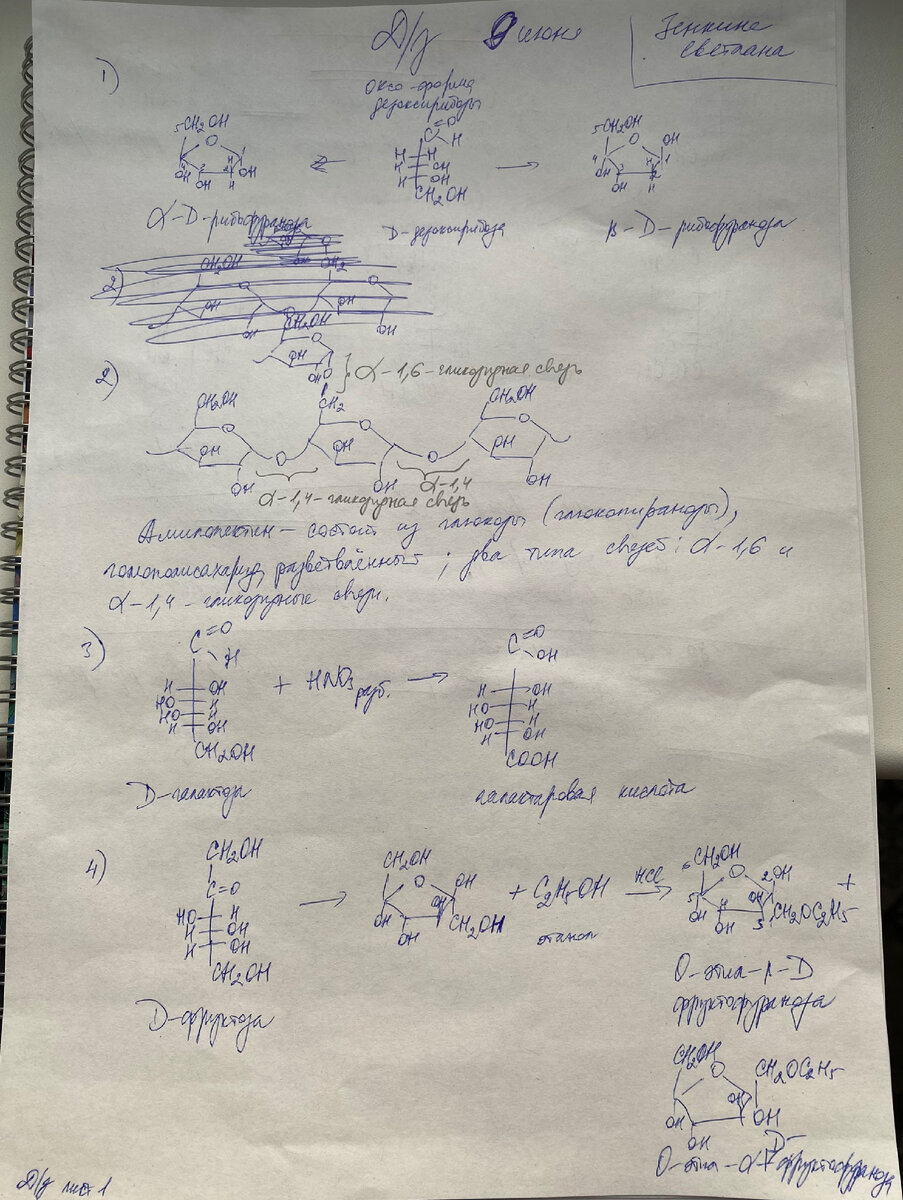 Д/з 9 июня
Зенкине
Светлана
1)
оксо-форма
дезоксирибозы
5CH2OH O OH H OH H
C=O H
H H
H OH
H OH
CH2OH
5CH2OH O OH H OH H
α-D-рибофураноза
D-дезоксирибоза
β-D-рибофураноза
2)
CH2OH O OH OH
α-1,6-гликозидная связь
2)
CH2OH O OH OH O CH2 O OH OH O CH2OH O OH OH
α-1,4-гликозидная связь
α-1,4
Амилопектен - состоит из глюкозы (глюкопиранозы),
гомополисахарид, разветвлённый; два типа связей: α-1,6 и
α-1,4-гликозидные связи.
3)
C=O H
H OH
HO H
HO H
H OH
CH2OH
+ HNO3 разб. →
C=O OH
H OH
HO H
HO H
H OH
COOH
D-галактоза
галактаровая кислота
4)
CH2OH
C=O
HO H
H OH
H OH
CH2OH
→
CH2OH O OH OH OH OH CH2OH
+ C2H5OH
HCl →
этанол
6CH2OH O 2OH OH OH OH CH2OC2H5 +
D-фруктоза
O-этил-β-D
фруктофураноза
CH2OH O CH2OC2H5 OH OH OH OH
O-этил-α-D-фруктофураноза
Д/з лист 1